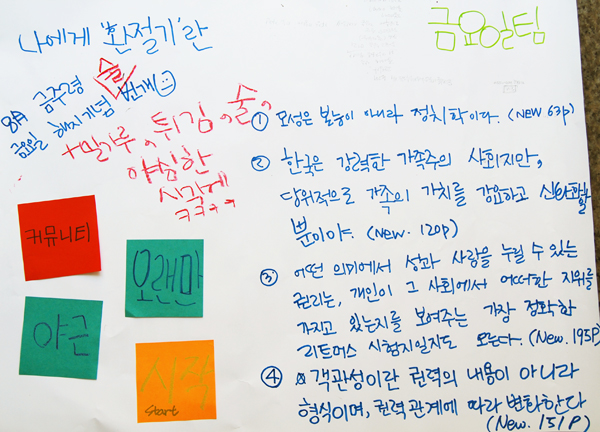 나에게 '환절기'란
금요일팀
8月 금주령 술
금요일 해지기념 번개
+밀가루 튀김 술
야심한
시각에
ㅋㅋㅋㅋ
커뮤니티
오랜만
야근
시작
Start
① 모성은 본능이 아니라 정치학이다. (New 63p)
② 한국은 강력한 가족주의 사회지만,
당위적으로 가족의 가치를 강요하고 신화화할
뿐이야. (New. 120p)
③ 어떤 의미에서 성과 사랑을 누릴 수 있는
권리는, 개인이 그 사회에서 어떠한 지위를
가지고 있는지를 보여주는 가장 정확한
리트머스 시험지일지도 모른다. (New. 195p)
④ 객관성이란 권력의 내용이 아니라
형식이며, 권력관계에 따라 변화한다
(New. 151P)